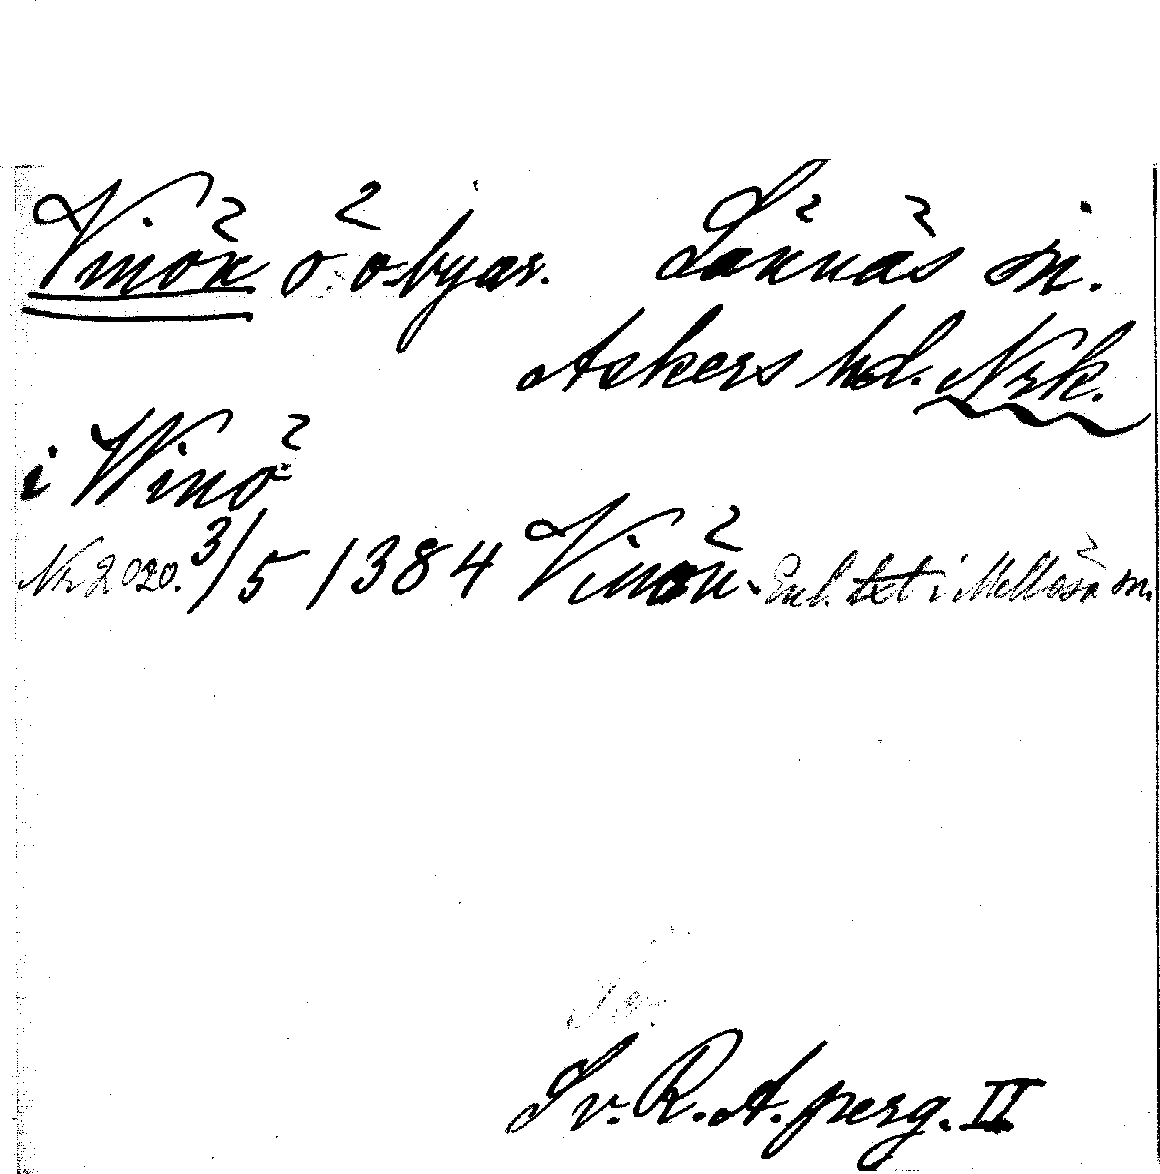 Vinön ö o. byar. Lännäs sn.
Askers hd. Nrk.
i Winö
Nr 2020. 3/5 1384 Vinön. Enl. txt i Mellösa sn.
Sv. R. A. perg. II